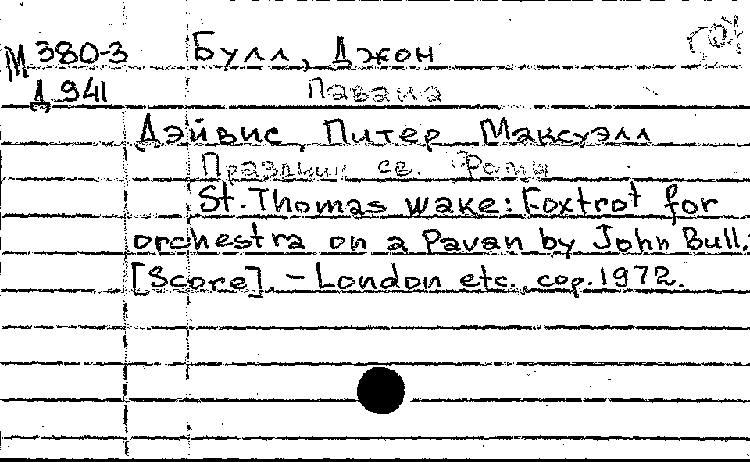 М 380-3 Булл, Джон
Д 941 Павана
Дэйвис, Питер Максуэлл
Праздник св. Фомы
St. Thomas wake: Foxtrot for
orchestra on a Pavan by John Bull.
[Score]. – London etc., cop. 1972.